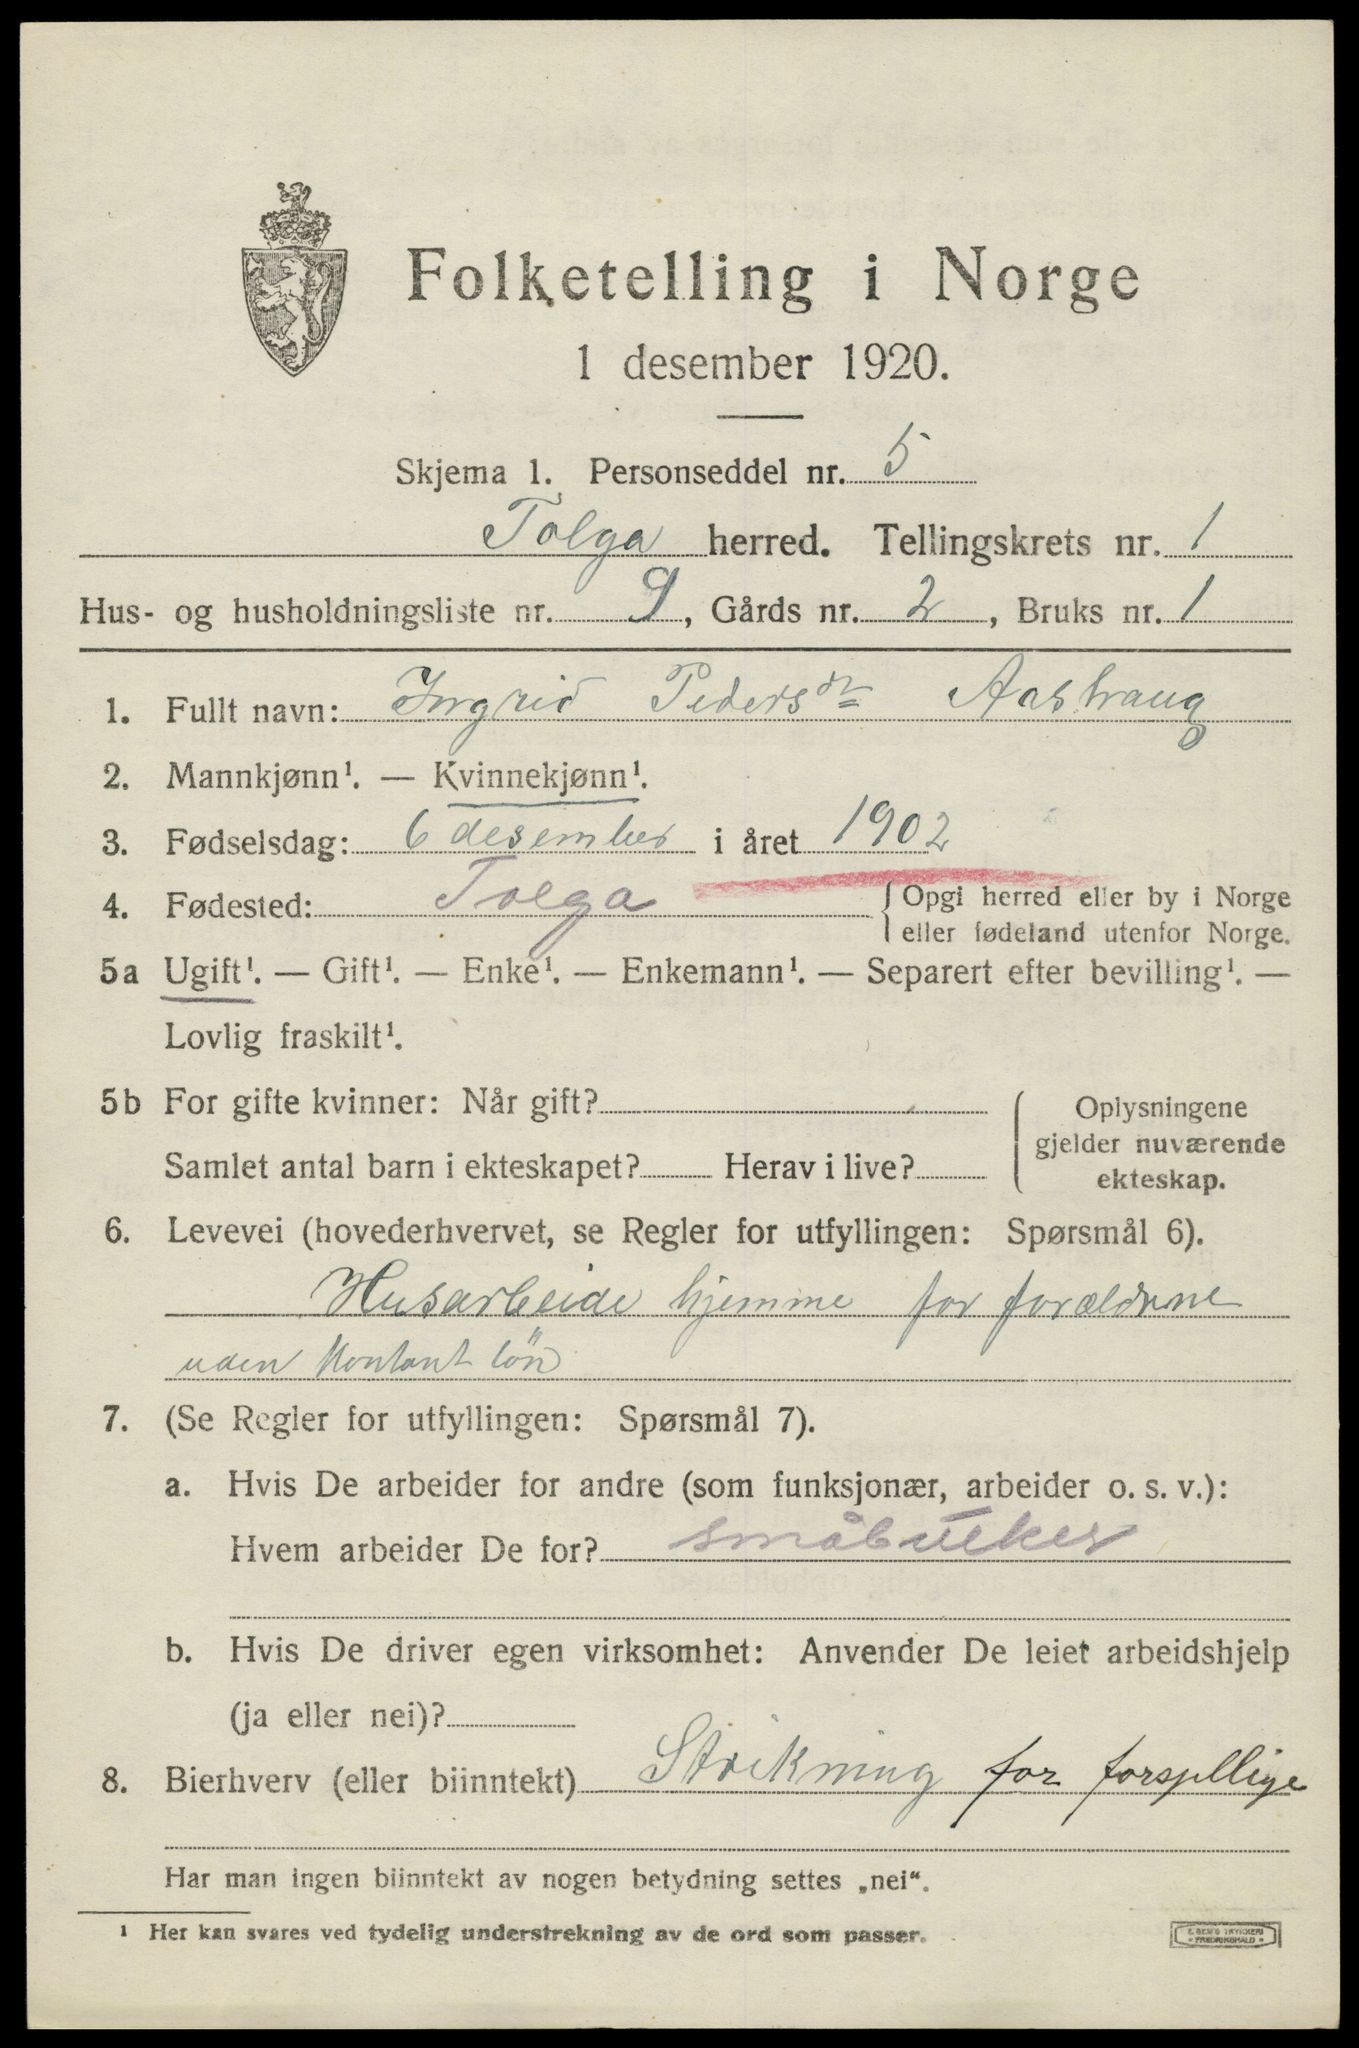 Folketelling i Norge
1 desember 1920.
Skjema 1. Personseddel nr. 5
Tolga herred. Tellingskrets nr. 1
Hus- og husholdningsliste nr. 9, Gårds nr. 2, Bruks nr. 1
1. Fullt navn: Ingrid Pedersdr Aashaug
2. Mannkjønn¹. — Kvinnekjønn¹.
3. Fødselsdag: 6 desember i året 1902
4. Fødested: Tolga { Opgi herred eller by i Norge
eller fødeland utenfor Norge.
5a Ugift¹. — Gift¹. — Enke¹. — Enkemann¹. — Separert efter bevilling¹. —
Lovlig fraskilt¹.
5b For gifte kvinner: Når gift?
Samlet antal barn i ekteskapet? Herav i live?
Oplysningene
gjelder nuværende
ekteskap.
6. Levevei (hovederhvervet, se Regler for utfyllingen: Spørsmål 6).
Husarbeide hjemme for forældrene
uden kontant løn
7. (Se Regler for utfyllingen: Spørsmål 7).
a. Hvis De arbeider for andre (som funksjonær, arbeider o. s. v.):
Hvem arbeider De for? småbruker
b. Hvis De driver egen virksomhet: Anvender De leiet arbeidshjelp
(ja eller nei)?
8. Bierhverv (eller biinntekt) Strikning for
Har man ingen biinntekt av nogen betydning settes „nei“.
¹ Her kan svares ved tydelig understrekning av de ord som passer.